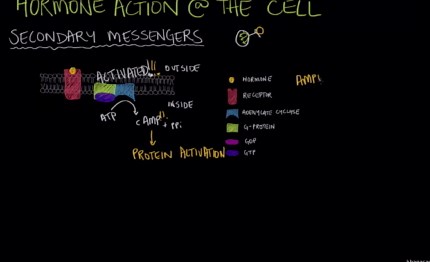 HORMONE ACTION @ THE CELL
SECONDARY MESSENGERS
ACTIVATED!!!
OUTSIDE
INSIDE
ATP
cAMP!! + PPi
PROTEIN ACTIVATION
HORMONE
RECEPTOR
ADENYLATE CYCLASE
G-PROTEIN
GDP
GTP